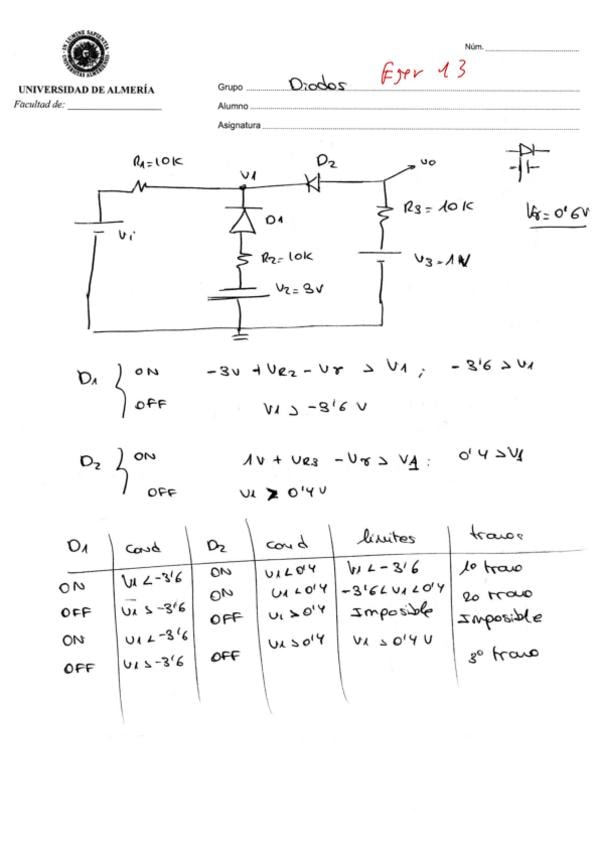 Núm.
Ejer 13
UNIVERSIDAD DE ALMERÍA
Facultad de:
Grupo Diodos
Alumno
Asignatura
R1=10K
V1
D2
vo
Vi
D1
R2=10K
V2=3V
R3=10K
V3=1V
Vγ=0'6V
D1 { ON -3V + VR2 - Vγ > V1 ; -3'6 > V1
OFF V1 > -3'6 V
D2 { ON 1V + VR3 - Vγ > V1 : 0'4 > V1
OFF V1 > 0'4 V
D1 cond D2 cond limites tramos
ON V1 < -3'6 ON V1 < 0'4 V1 < -3'6 1º tramo
OFF V1 > -3'6 ON V1 < 0'4 -3'6 < V1 < 0'4 2º tramo
ON V1 < -3'6 OFF V1 > 0'4 Imposible Imposible
OFF V1 > -3'6 OFF V1 > 0'4 V1 > 0'4 V 3º tramo